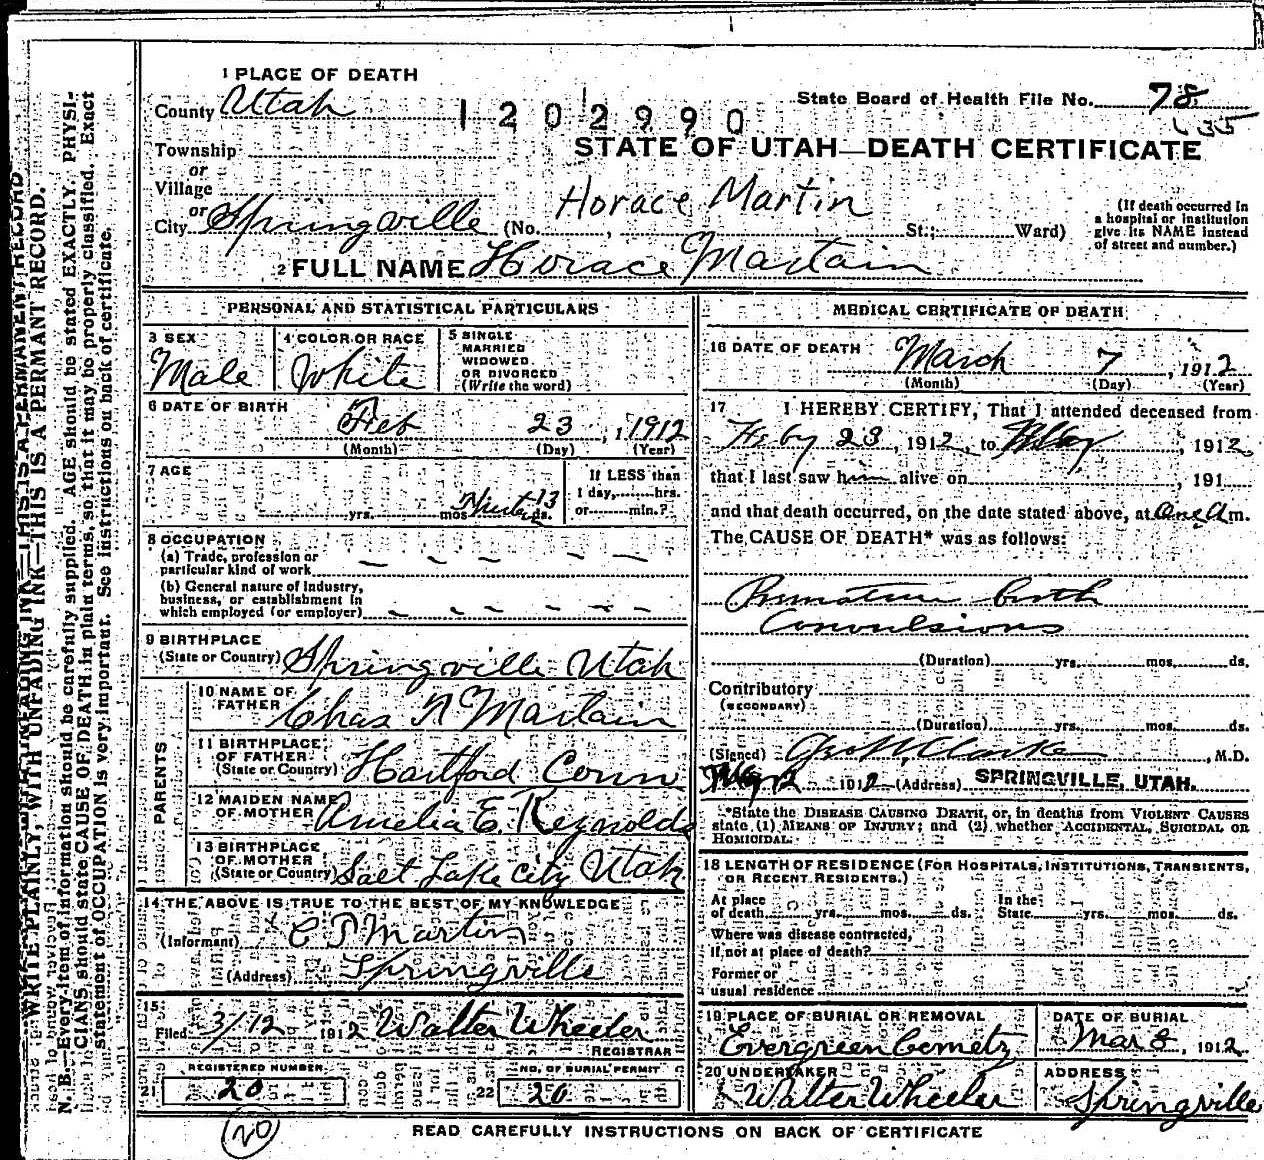 1 PLACE OF DEATH
County Utah
1202990
State Board of Health File No. 78
635
STATE OF UTAH—DEATH CERTIFICATE
Township
or
Village
or
City Springville (No. , St.; Ward)
Horace Martin
(If death occurred in
a hospital or institution
give its NAME instead
of street and number.)
2 FULL NAME Horace Martain
PERSONAL AND STATISTICAL PARTICULARS
3 SEX
Male
4 COLOR OR RACE
White
5 SINGLE
MARRIED
WIDOWED
OR DIVORCED
(Write the word)
6 DATE OF BIRTH
Feb 23, 1912
(Month) (Day) (Year)
7 AGE
yrs. mos. 13 ds.
If LESS than
1 day, hrs.
or min.?
8 OCCUPATION
(a) Trade, profession or
particular kind of work
(b) General nature of industry,
business, or establishment in
which employed (or employer)
9 BIRTHPLACE
(State or Country) Springville Utah
PARENTS
10 NAME OF
FATHER Chas Martain
11 BIRTHPLACE
OF FATHER
(State or Country) Hartford Conn
12 MAIDEN NAME
OF MOTHER Amelia E. Reynolds
13 BIRTHPLACE
OF MOTHER
(State or Country) Salt Lake City Utah
14 THE ABOVE IS TRUE TO THE BEST OF MY KNOWLEDGE
(Informant) Martin
(Address) Springville
15
Filed 3/12 1912 Walter Wheeler
REGISTRAR
REGISTERED NUMBER
21 20
NO. OF BURIAL PERMIT
22 20
20
MEDICAL CERTIFICATE OF DEATH
16 DATE OF DEATH March 7, 1912
(Month) (Day) (Year)
17 I HEREBY CERTIFY, That I attended deceased from
Feby 23, 1912, to , 1912,
that I last saw him alive on , 191
and that death occurred, on the date stated above, at One A m.
The CAUSE OF DEATH* was as follows:
Premature birth
Convulsions
(Duration) yrs. mos. ds.
Contributory
(SECONDARY)
(Duration) yrs. mos. ds.
(Signed) Geo Clarke, M.D.
12 1912 (Address) SPRINGVILLE, UTAH.
*State the DISEASE CAUSING DEATH, or, in deaths from VIOLENT CAUSES
state (1) MEANS OF INJURY; and (2) whether ACCIDENTAL, SUICIDAL OR
HOMICIDAL.
18 LENGTH OF RESIDENCE (FOR HOSPITALS, INSTITUTIONS, TRANSIENTS,
OR RECENT RESIDENTS.)
At place
of death yrs. mos. ds.
In the
State yrs. mos. ds.
Where was disease contracted,
if not at place of death?
Former or
usual residence
19 PLACE OF BURIAL OR REMOVAL
Evergreen
DATE OF BURIAL
Mar 8, 1912
20 UNDERTAKER
Walter Wheeler
ADDRESS
Springville
READ CAREFULLY INSTRUCTIONS ON BACK OF CERTIFICATE
WRITE PLAINLY, WITH UNFADING INK—THIS IS A PERMANT RECORD.
N. B.—Every item of information should be carefully supplied. AGE should be stated EXACTLY. PHYSI-
CIANS should state CAUSE OF DEATH in plain terms, so that it may be properly classified. Exact
statement of OCCUPATION is very important. See instructions on back of certificate.